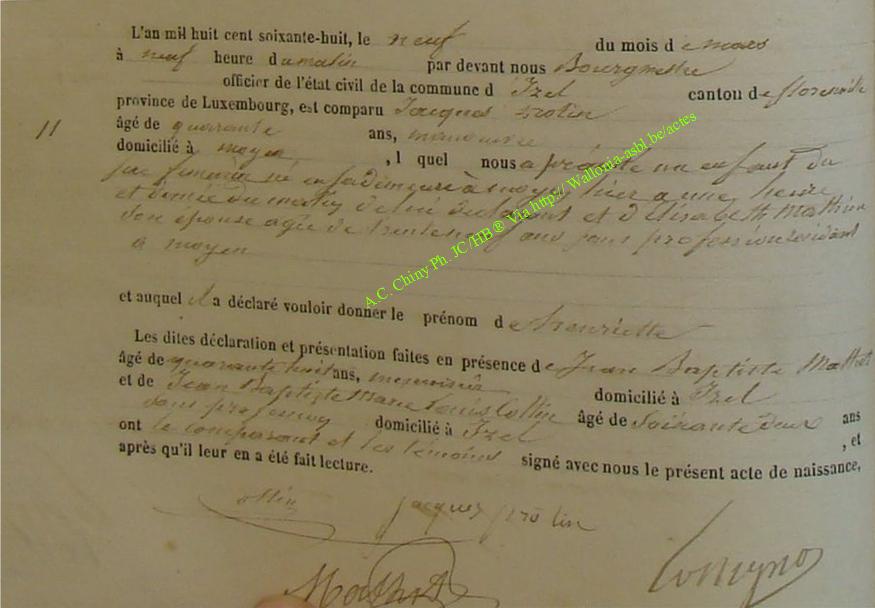 L'an mil huit cent soixante-huit, le neuf du mois d e mars
à neuf heure du matin par devant nous Bourgmestre
officier de l'état civil de la commune d' Izel canton de florenville
province de Luxembourg, est comparu Jacques
11
âgé de quarante ans, manouvrier
domicilié à moyen, l quel nous a présenté un enfant du
sexe féminin né en sa demeure à moyen hier a une heure
et demie du matin de lui déclarant et d'Elisabeth Mathieu
son épouse agée de ans sans profession résidant
a moyen
et auquel il a déclaré vouloir donner le prénom d e henriette
Les dites déclaration et présentation faites en présence de Jean Baptiste Mathot
âgé de quarante huit ans, menuisier domicilié à Izel
et de Jean Baptiste Marie Louis Collin âgé de soixante deux ans
sans profession domicilié à Izel, et
ont le comparant et les témoins signé avec nous le présent acte de naissance,
après qu'il leur en a été fait lecture.
jacques
Mathot
A.C. Chiny Ph. JC/HB ® Via http:// Wallonia-asbl.be/actes